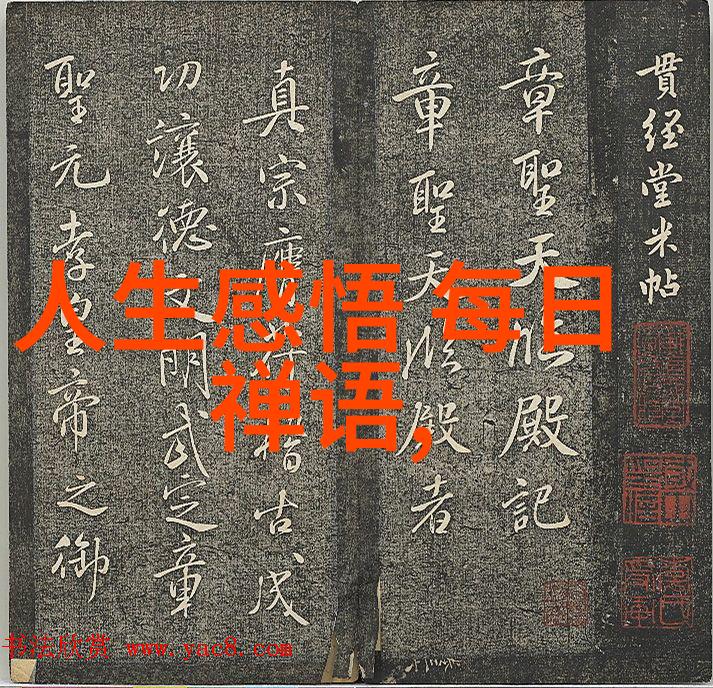 貫經堂米帖
章聖天臨殿記
章聖天臨殿者
真宗膺稽古成
功讓德文明武定章
聖元孝皇帝之御
人生感悟,每日
禅语,
书法欣赏 www.yac8.com